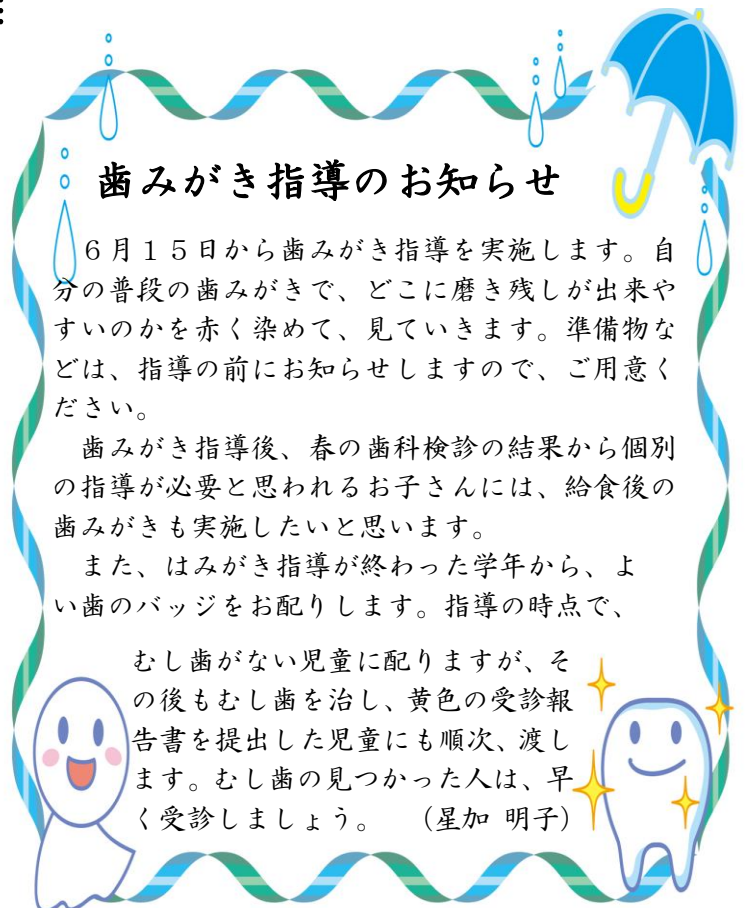 歯みがき指導のお知らせ
　６月１５日から歯みがき指導を実施します。自
分の普段の歯みがきで、どこに磨き残しが出来や
すいのかを赤く染めて、見ていきます。準備物な
どは、指導の前にお知らせしますので、ご用意く
ださい。
　歯みがき指導後、春の歯科検診の結果から個別
の指導が必要と思われるお子さんには、給食後の
歯みがきも実施したいと思います。
　また、はみがき指導が終わった学年から、よ
い歯のバッジをお配りします。指導の時点で、
むし歯がない児童に配りますが、そ
の後もむし歯を治し、黄色の受診報
告書を提出した児童にも順次、渡し
ます。むし歯の見つかった人は、早
く受診しましょう。　（星加 明子）